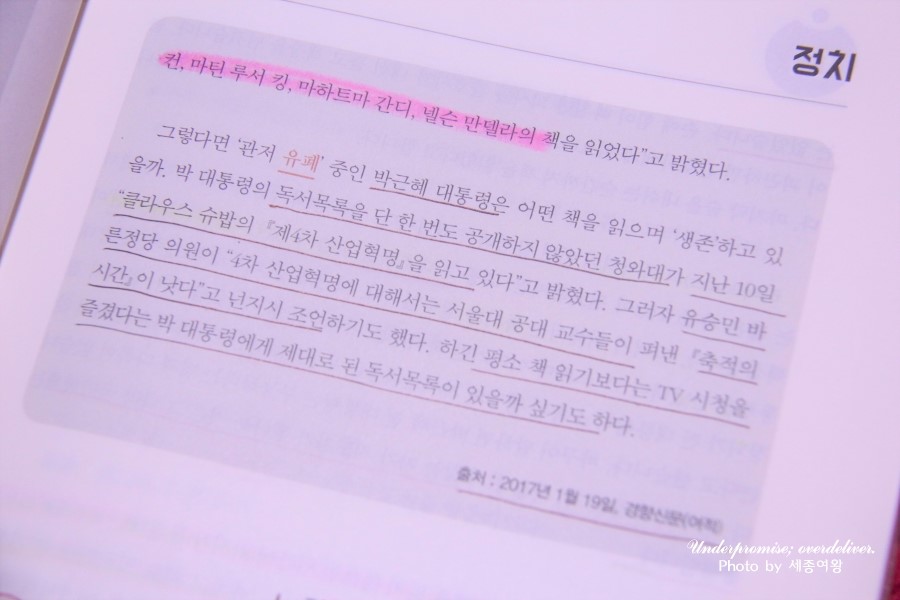 정치
컨, 마틴 루서 킹, 마하트마 간디, 넬슨 만델라의 책을 읽었다”고 밝혔다.
그렇다면 ‘관저 유폐’ 중인 박근혜 대통령은 어떤 책을 읽으며 ‘생존’하고 있
을까. 박 대통령의 독서목록을 단 한 번도 공개하지 않았던 청와대가 지난 10일
“클라우스 슈밥의 『제4차 산업혁명』을 읽고 있다”고 밝혔다. 그러자 유승민 바
른정당 의원이 “4차 산업혁명에 대해서는 서울대 공대 교수들이 펴낸 『축적의
시간』이 낫다”고 넌지시 조언하기도 했다. 하긴 평소 책 읽기보다는 TV 시청을
즐겼다는 박 대통령에게 제대로 된 독서목록이 있을까 싶기도 하다.
출처 : 2017년 1월 19일, 경향신문(여적)
Underpromise; overdeliver.
Photo by 세종여왕